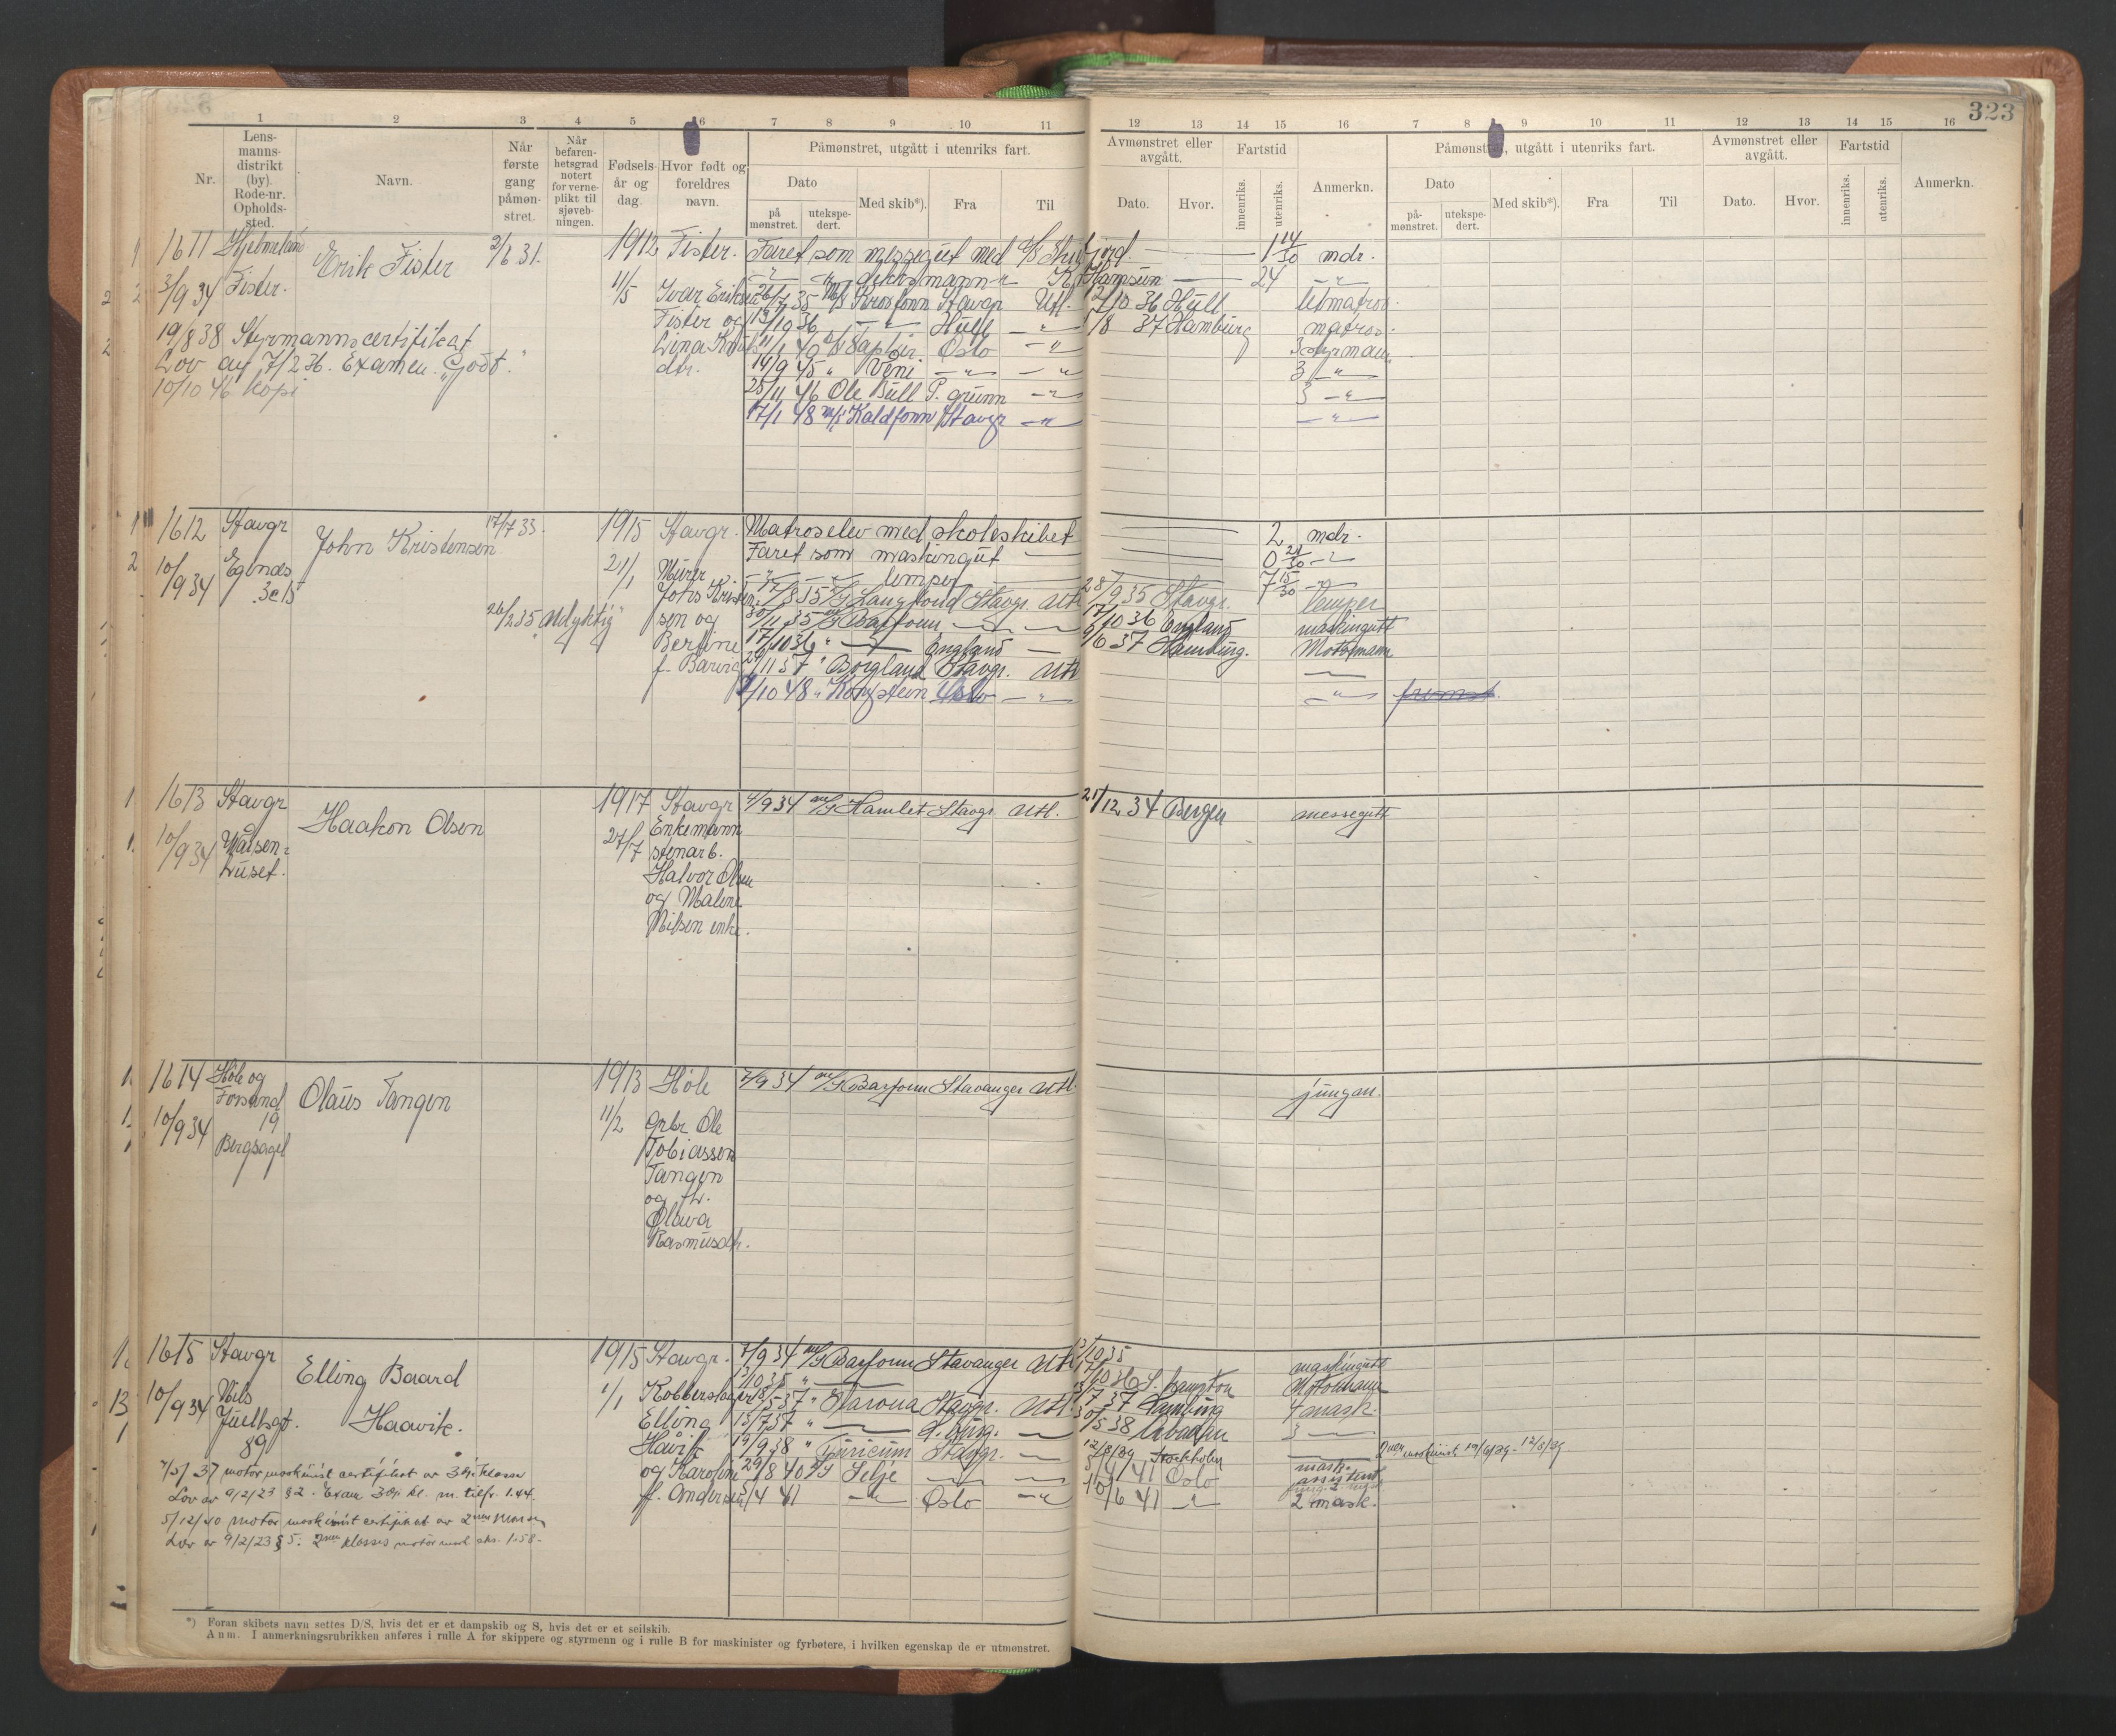 323
1 2 3 4 5 6 7 8 9 10 11 12 13 14 15 16 7 8 9 10 11 12 13 14 15 16
Nr.
Lens-
manns-
distrikt
(by).
Rode-nr.
Opholds-
sted.
Navn.
Når
første
gang
påmøn-
stret.
Når
befaren-
hetsgrad
notert
for verne-
plikt til
sjøveb-
ningen.
Fødsels-
år og
dag.
Hvor født og
foreldres
navn.
Påmønstret, utgått i utenriks fart.
Dato
på
mønstret.
utekspe-
dert.
Med skib*).
Fra
Til
Avmønstret eller
avgått.
Dato.
Hvor.
Fartstid
innenriks.
utenriks.
Anmerkn.
Påmønstret, utgått i utenriks fart.
Dato
på-
mønstret.
utekspe-
dert.
Med skib*).
Fra
Til
Avmønstret eller
avgått.
Dato.
Hvor.
Fartstid
innenriks.
utenriks.
Anmerkn.
1611 Hjelmeland Erik Fister 2/6 31. 1912 Fister. Faret som messegut med 1 14/30 mdr.
3/9 34 Fister. 11/5 dekksmann K. Hamsun 24 — " —
Ivar Eriksen 26/7 35 M/S Krosfonn Stavgr Utl. 2/10 36 Hull Utmatros.
Fister og 13/10 36 — " — Hull — " — 1/8 37 Hamburg matros.
19/8 38 Styrmannscertifikat
Lina 11/1 40 Oslo — " — 3 styrmann
Lov av 7/2 36. Examen "Godt".
dtr. 14/9 45 " Veni — " — — " — 3 — " —
10/10 46 Kopi
25/11 46 Ole Bull P. grunn — " — 3 — " —
17/1 48 m/s Kaldfonn Stavgr — " — — " —
1612 Stavgr John Kristensen 17/7 33. 1915 Stavgr. Matroselev med skoleskibet 2 mdr.
10/9 34 Egenes 21/1 Murer Faret som maskingut 0 21/30 — " —
lemper 7 15/30 — " —
Johs Kristen- 17/8 35 Langfond Stavgr. Utl 28/9 35 Stavgr. lemper
26/2 35 "Udyktig" sen og 30/11 35 Barfonn 17/10 36 England maskingutt
Bertine 17/10 36 " England — 9/6 37 Hamburg. Motormann
f. Barvig 29/11 37 " Borgland Stavgr. Utl
1/10 48 " Kongstein Oslo — " — — " —
1613 Stavgr Haakon Olsen 1917 Stavgr 4/9 34 M/S Hamlet Stavgr. Utl. 21/12 34 Bergen messegutt
10/9 34 Waisen- 27/7 Enkemann
huset. stenarb.
Halvor Olsen
og Malene
Nilsen enke.
1614 Høle og Olaus Tangen 1913 Høle 7/9 34 M/S Barfonn Stavanger Utl. jungm.
Forsand
19
10/9 34 Bergsagel 11/2 Gbr Ole
Tobiassen
Tangen
og h.
Olava
Rasmusdtr.
1615 Stavgr Elling Baard 1915 Stavgr. 7/9 34 M/S Barfonn Stavanger Utl 2/10 35 maskingutt
10/9 34 Nils Haavik. 1/1 Kobberslager 2/10 35 " 17/10 36 S. hampton Motormann
Juelsgt. Elling 18/5 37 " Stavgr. Utl. 13/7 37 Hamburg 4 mask.
89 Håvik 13/7 37 " 30/5 38 Abadan 3 —
og Karoline 14/9 38 " Turicum Stavgr. — 12/8/39 Stockholm 2nen maskinist 10/6/39 - 12/8/39
f. Andersen 29/8 40 D/S Selje 5/4 41 Oslo mask.
assistent
5/4 41 — " — Oslo — " — 10/6 41 — " — 2 mask.
7/5/37 motormaskinist certifikat av 3dje klasse
Lov av 9/2/23 § 2. Exam 3dje kl. m. tilfr. 1.44.
5/12/40 motormaskinist certifikat av 2nen klasse
Lov av 9/2/23 § 5. 2nen klasses motormask. eks. 1.58.
*) Foran skibets navn settes D/S, hvis det er et dampskib og S, hvis det er et seilskib.
Anm. I anmerkningsrubrikken anføres i rulle A for skippere og styrmenn og i rulle B for maskinister og fyrbøtere, i hvilken egenskap de er utmønstret.